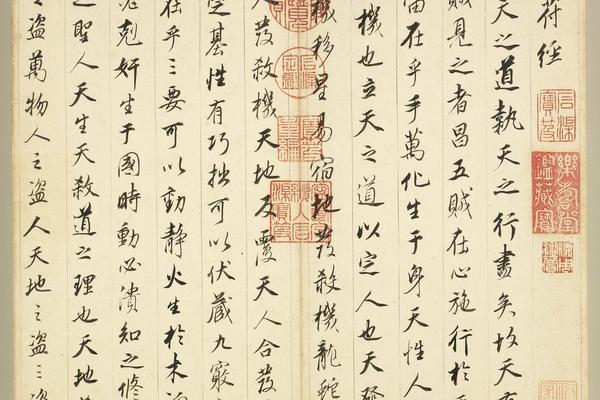 符經
天之道執天之行盡矣故天有
賊見之者昌五賊在心施行於
宙在乎手萬化生于身天性人
機也立天之道以定人也天發
機移星易宿地發殺機龍蛇
人發殺機天地反覆天人合發
定基性有巧拙可以伏藏九竅
在乎三要可以動靜火生於木
必剋奸生于國時動必潰知之修
之聖人天生天殺道之理也天地
之盜萬物人之盜人天地之盜三盜
石渠寶笈
樂壽堂鑑藏寶
石渠定鑑
寶笈重編